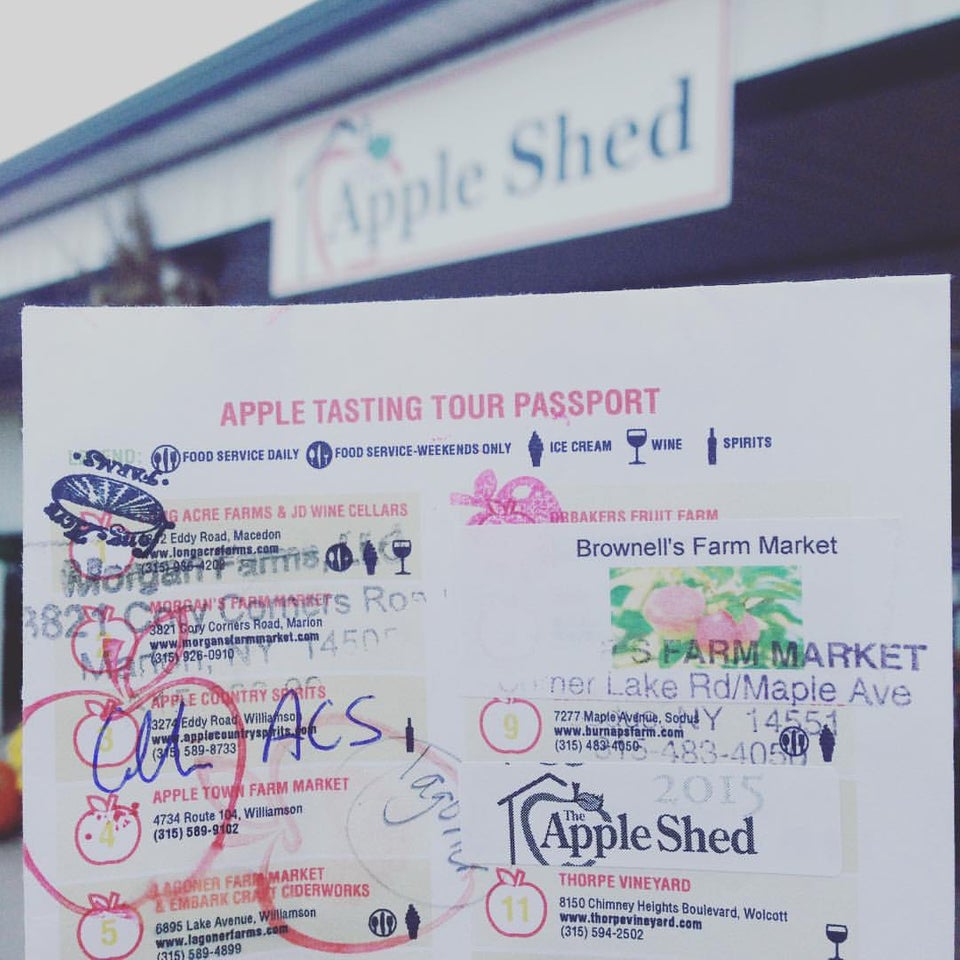 The
Apple Shed
APPLE TASTING TOUR PASSPORT
LEGEND: FOOD SERVICE DAILY FOOD SERVICE-WEEKENDS ONLY ICE CREAM WINE SPIRITS
FARMS
ACRE FARMS & JD WINE CELLARS
Eddy Road, Macedon
www.longacrefarms.com
Morgan Farms, LLC
MORGAN'S FARM MARKET
3821 Cory Corners Road, Marion
www.morgansfarmmarket.com
(315) 926-0910
3821 Cory Corners Ro
Marion, NY
APPLE COUNTRY SPIRITS
3274 Eddy Road, Williamson
www.applecountryspirits.com
(315) 589-8733
3
ACS
4
APPLE TOWN FARM MARKET
4734 Route 104, Williamson
(315) 589-9102
5
LAGONER FARM MARKET
& EMBARK CRAFT CIDERWORKS
6895 Lake Avenue, Williamson
www.lagonerfarms.com
(315) 589-4899
ORBAKERS FRUIT FARM
Brownell's Farm Market
'S FARM MARKET
Corner Lake Rd/Maple Ave
NY 14551
315-483-4050
9
7277 Maple Avenue, Sodus
www.burnapsfarm.com
(315) 483-4050
2015
The
Apple Shed
11
THORPE VINEYARD
8150 Chimney Heights Boulevard, Wolcott
www.thorpevineyard.com
(315) 594-2502